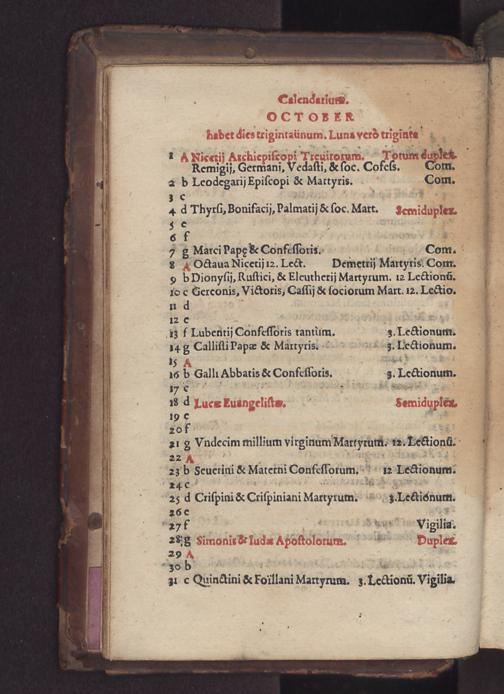 Calendarium.
OCTOBER
habet dies trigintaünum. Luna verò triginta
1 A Nicetij Archiepiſcopi Treuirorum. Totum duplex.
Remigij, Germani, Vedaſti, & ſoc. Cofeſſ. Com.
2 b Leodegarij Epiſcopi & Martyris. Com.
3 c
4 d Thyrſi, Bonifacij, Palmatij & ſoc. Mart. Semiduplex.
5 e
6 f
7 g Marci Papę & Confeſſoris. Com.
8 A Octaua Nicetij 12. Lect. Demetrij Martyris. Com.
9 b Dionyſij, Ruſtici, & Eleutherij Martyrum. 12 Lectionū.
10 c Gereonis, Victoris, Caſſij & ſociorum Mart. 12. Lectio.
11 d
12 e
13 f Lubentij Confeſſoris tantùm. 3. Lectionum.
14 g Calliſti Papæ & Martyris. 3. Lectionum.
15 A
16 b Galli Abbatis & Confeſſoris. 3. Lectionum.
17 c
18 d Lucæ Euangeliſtæ. Semiduplex.
19 e
20 f
21 g Vndecim millium virginum Martyrum. 12. Lectionū.
22 A
23 b Seuerini & Materni Confeſſorum. 12 Lectionum.
24 c
25 d Criſpini & Criſpiniani Martyrum. 3. Lectionum.
26 e
27 f Vigilia.
28 g Simonis & Iudæ Apoſtolorum. Duplex.
29 A
30 b
31 c Quinctini & Foïllani Martyrum. 3. Lectionū. Vigilia.